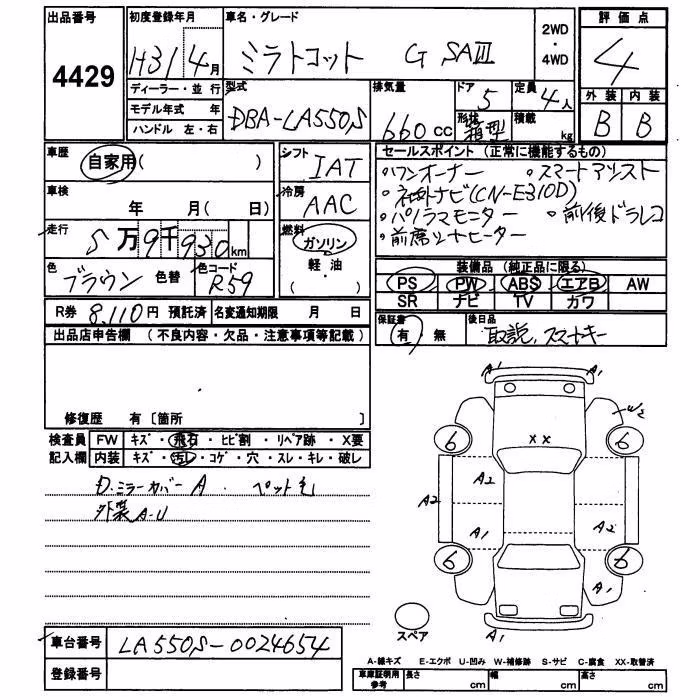 出品番号 初度登録年月 車名・グレード 2WD・4WD 評価点
4429 H31 4月 ミラトコット G SAⅢ 4
ディーラー・並行 型式 排気量 ドア 定員 外装 内装
モデル年式 年 DBA-LA550S 660cc 5 4人 B B
ハンドル 左・右 形状 箱型 積載 kg
車歴 自家用( ) シフト IAT セールスポイント(正常に機能するもの)
車検 年 月( 日) 冷房 AAC ・ワンオーナー ・スマートアシスト
・社外ナビ(CN-E310D)
走行 5万9千930km 燃料 ガソリン ・パノラマモニター ・前後ドラレコ
軽油 ・前席シートヒーター
色 ブラウン 色替 色コード R59 ( )
装備品(純正品に限る)
PS PW ABS エアB AW
SR ナビ TV カワ
R券 8,110円 預託済 名変通知期限 月 日
保証書 有 無 後日品 取説、スマートキー
出品店申告欄(不良内容・欠品・注意事項等記載)
修復歴 有〔箇所 〕
検査員 FW キズ・飛石・ヒビ割・リペア跡・X要
記入欄 内装 キズ・汚レ・コゲ・穴・スレ・キレ・破レ
D.ミラーカバーA. ペット毛
外装A-U
A1 A1
U2
6 XX 6
A2
A2 A2
A1
6 6
A1
スペア A1
車台番号 LA550S-0024654
登録番号
A-線キズ E-エクボ U-凹み W-補修跡 S-サビ C-腐食 XX-取替済
車庫証明用参考 長さ cm 幅 cm 高さ cm